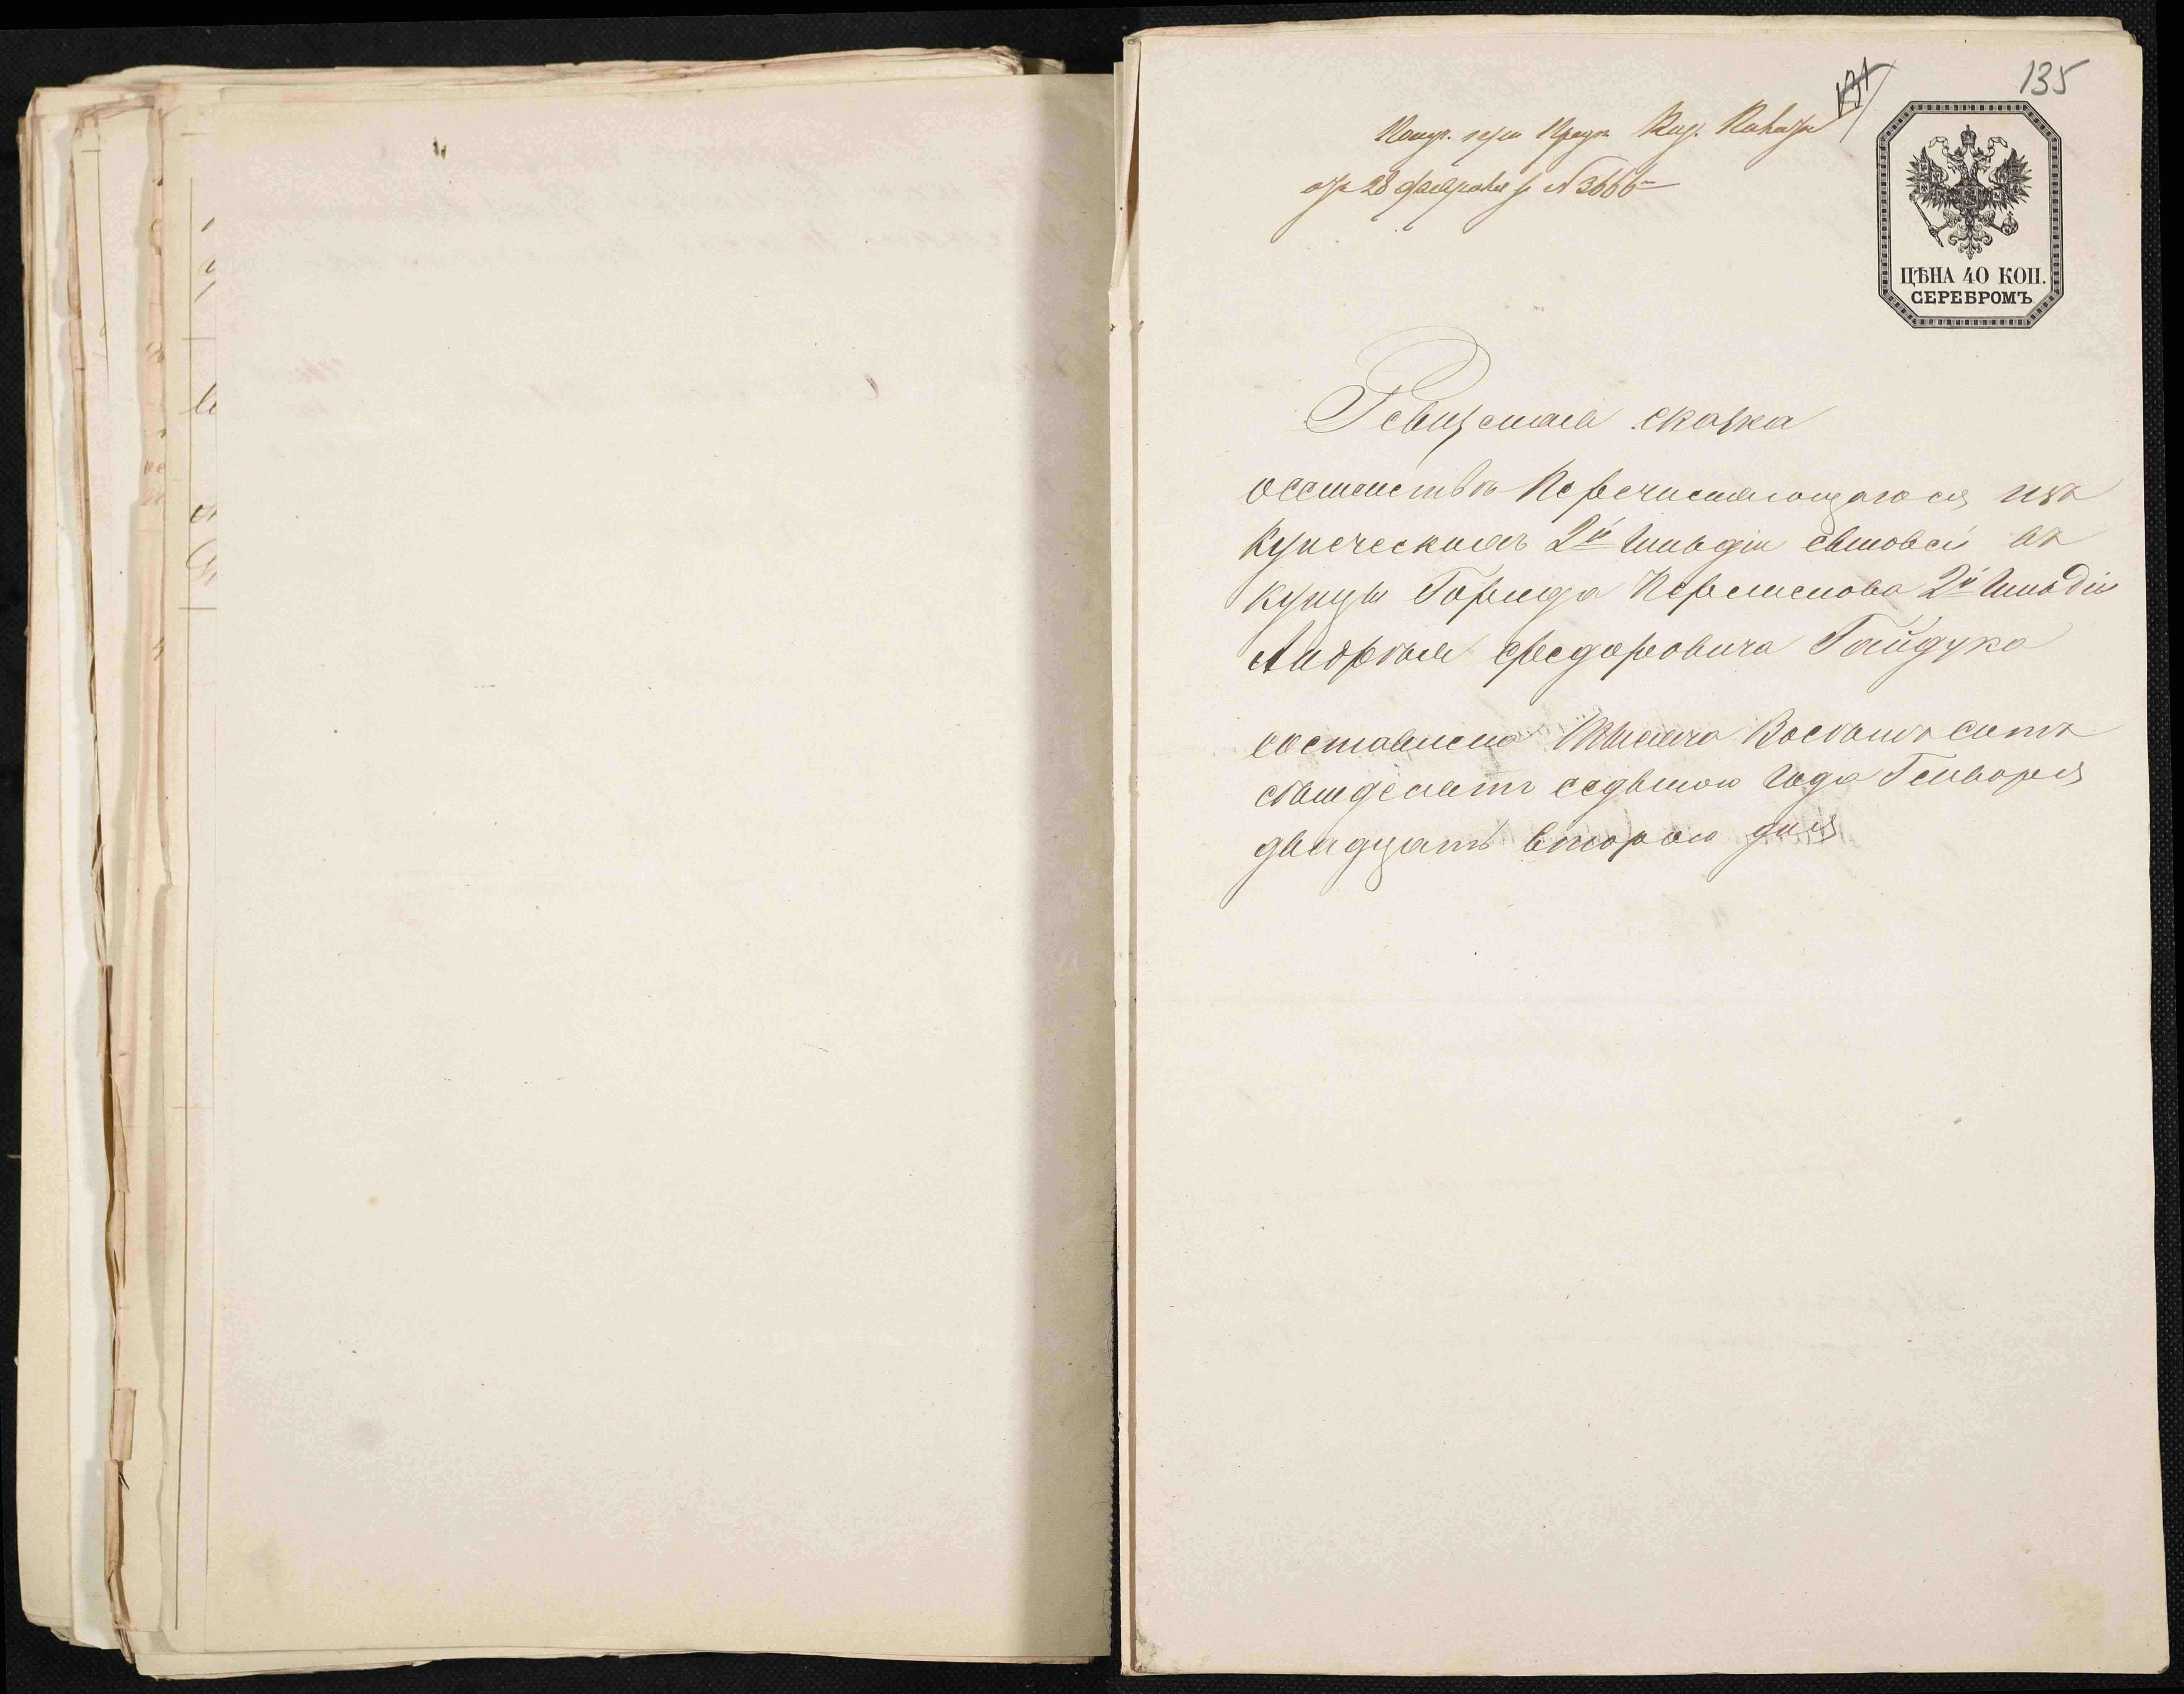 135
131
Получ. при Предп. Каз. Палаты
отъ 28 февраля № 3666
ЦѢНА 40 КОП.
СЕРЕБРОМЪ
Ревизская сказка
о семействѣ Перечисляющагося изъ
купеческихъ 2й Гильдіи сыновей въ
купцы Города 2й Гильдіи
Андрѣя Федоровича Гайдука
составлена Тысяча Восѣмьсотъ
сѣмдесятъ седьмого Года Генваря
двадцать второго дня